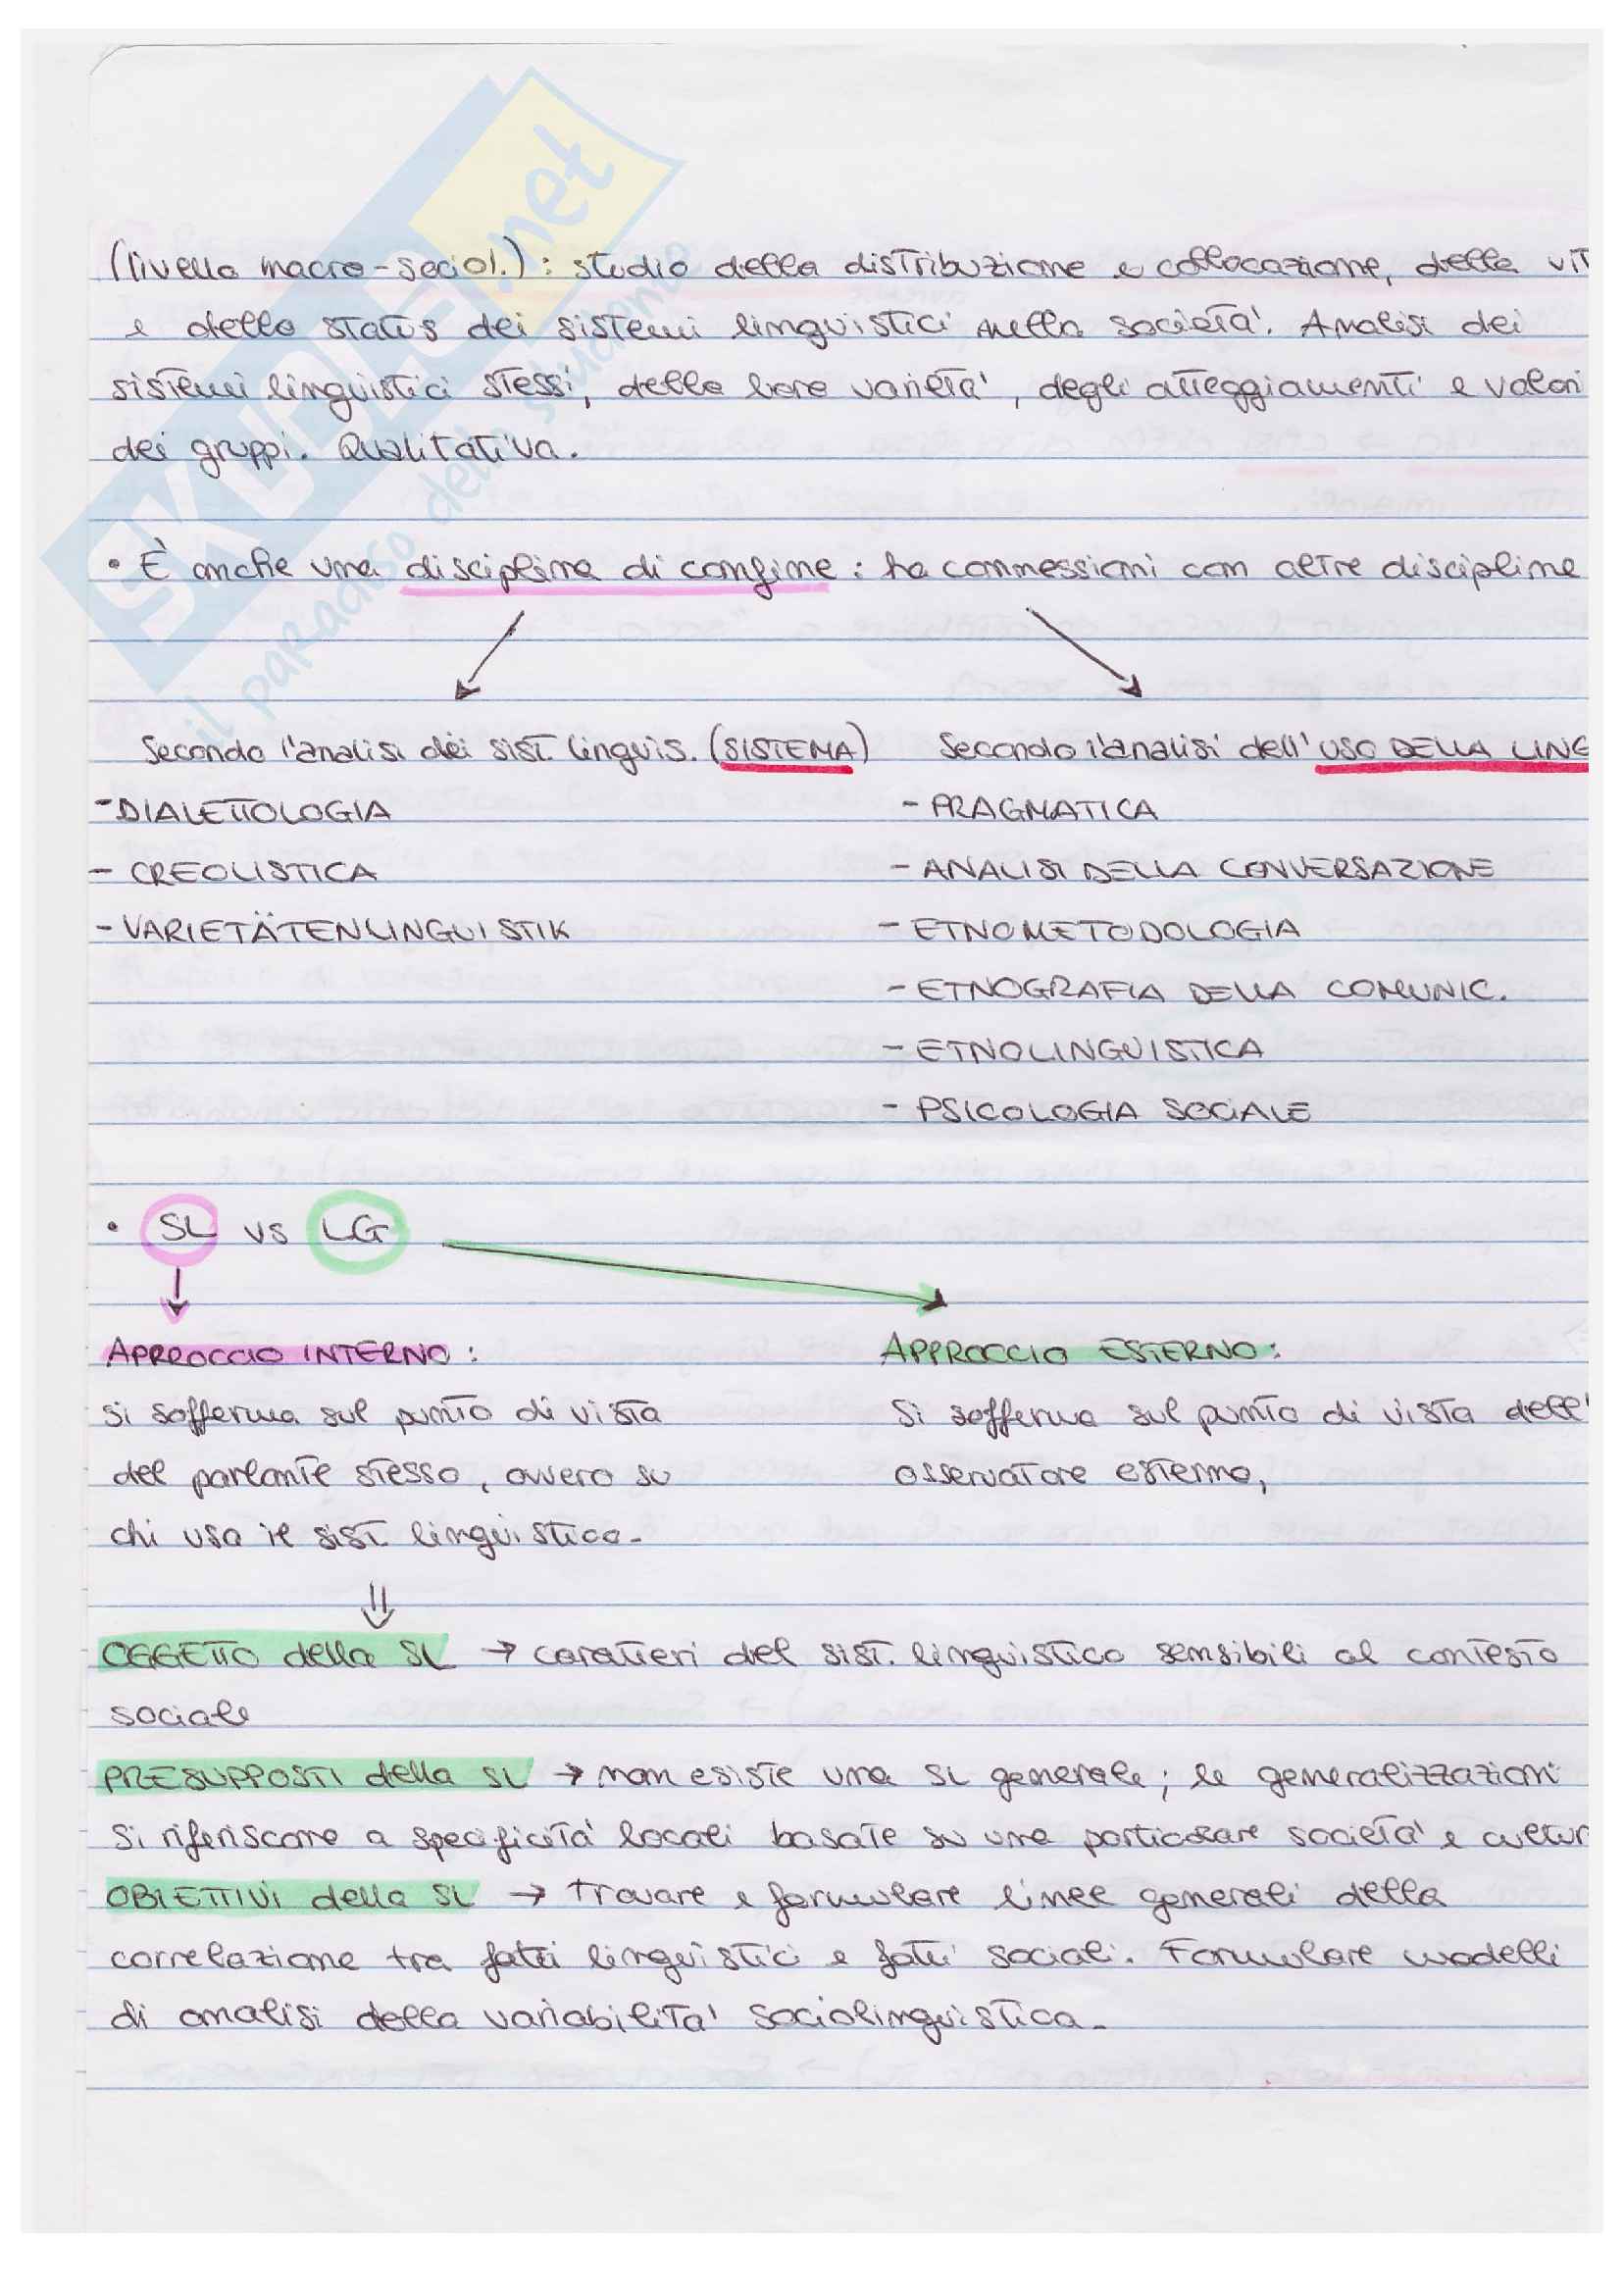 (livello macro-sociol.): studio della distribuzione e collocazione, della vit
e dello status dei sistemi linguistici nella società. Analisi dei
sistemi linguistici stessi, della loro varietà, degli atteggiamenti e valori
dei gruppi. Qualitativa.
• È anche una disciplina di confine: ha connessioni con altre discipline
Secondo l'analisi dei sist. linguis. (SISTEMA)
- DIALETTOLOGIA
- CREOLISTICA
- VARIETÄTENLINGUISTIK
Secondo l'analisi dell'USO DELLA LING
- PRAGMATICA
- ANALISI DELLA CONVERSAZIONE
- ETNOMETODOLOGIA
- ETNOGRAFIA DELLA COMUNIC.
- ETNOLINGUISTICA
- PSICOLOGIA SOCIALE
• SL vs LG
APPROCCIO INTERNO:
si sofferma sul punto di vista
del parlante stesso, ovvero su
chi usa il sist. linguistico.
APPROCCIO ESTERNO:
Si sofferma sul punto di vista dell'
osservatore esterno,
⇓
OGGETTO della SL → caratteri del sist. linguistico sensibili al contesto
sociale
PRESUPPOSTI della SL → non esiste una SL generale; le generalizzazioni
si riferiscono a specificità locali basate su una particolare società e cultur
OBIETTIVI della SL → trovare e formulare linee generali della
correlazione tra fatti linguistici e fatti sociali. Formulare modelli
di analisi della variabilità sociolinguistica.
SKUOLA.net
il paradiso dello studente